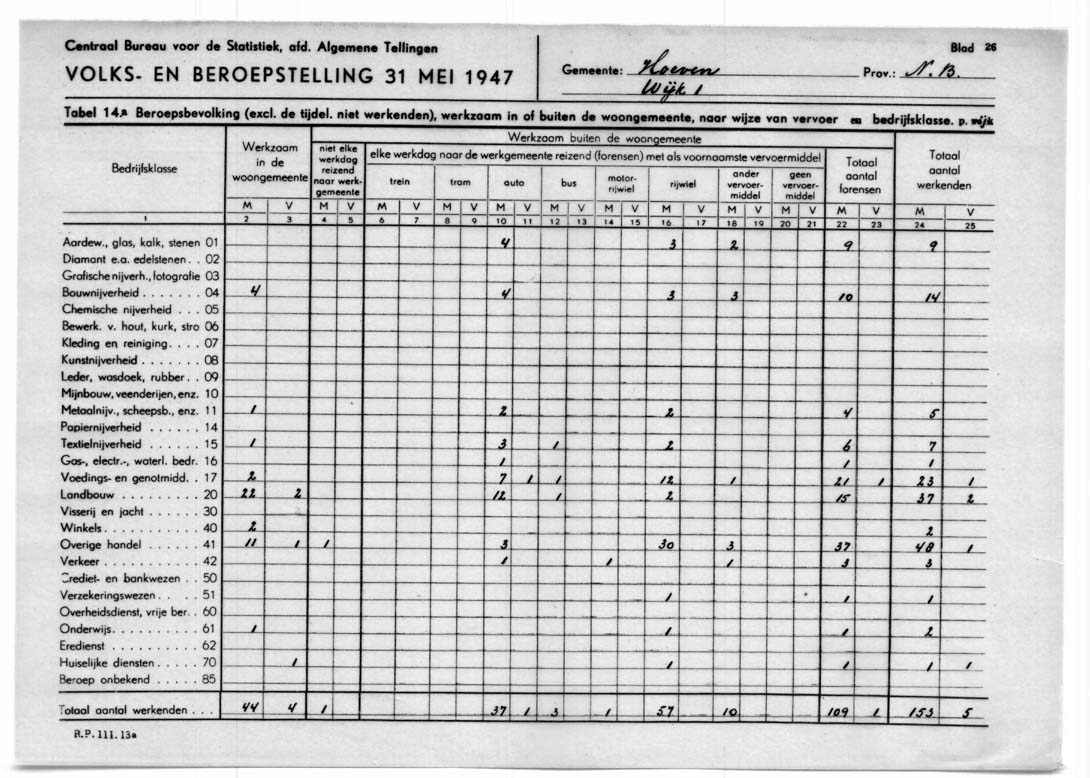 Centraal Bureau voor de Statistiek, afd. Algemene Tellingen
Blad 26
VOLKS- EN BEROEPSTELLING 31 MEI 1947
Gemeente: Hoeven
Prov.: N.B.
Wijk 1
Tabel 14.a Beroepsbevolking (excl. de tijdel. niet werkenden), werkzaam in of buiten de woongemeente, naar wijze van vervoer en bedrijfsklasse. p. wijk
Bedrijfsklasse
Werkzaam in de woongemeente
Werkzaam buiten de woongemeente
niet elke werkdag reizend naar werkgemeente
elke werkdag naar de werkgemeente reizend (forensen) met als voornaamste vervoermiddel
trein tram auto bus motor-rijwiel rijwiel ander vervoer-middel geen vervoer-middel
Totaal aantal forensen
Totaal aantal werkenden
M V M V M V M V M V M V M V M V M V M V M V M V
1 2 3 4 5 6 7 8 9 10 11 12 13 14 15 16 17 18 19 20 21 22 23 24 25
Aardew., glas, kalk, stenen 01 4 3 2 9 9
Diamant e.a. edelstenen . . 02
Grafische nijverh., fotografie 03
Bouwnijverheid . . . . . . . 04 4 4 3 3 10 14
Chemische nijverheid . . . 05
Bewerk. v. hout, kurk, stro 06
Kleding en reiniging . . . . 07
Kunstnijverheid . . . . . . . 08
Leder, wasdoek, rubber . . 09
Mijnbouw, veenderijen, enz. 10
Metaalnijv., scheepsb., enz. 11 1 2 2 4 5
Papiernijverheid . . . . . . 14
Textielnijverheid . . . . . . 15 1 3 1 2 6 7
Gas-, electr.-, waterl. bedr. 16 1 1 1
Voedings- en genotmidd. . 17 2 7 1 1 12 1 21 1 23 1
Landbouw . . . . . . . . . 20 22 2 12 1 2 15 37 2
Visserij en jacht . . . . . . 30
Winkels . . . . . . . . . . . 40 2 2
Overige handel . . . . . . 41 11 1 1 3 30 3 37 48 1
Verkeer . . . . . . . . . . . 42 1 1 1 3 3
Crediet- en bankwezen . . 50
Verzekeringswezen . . . . 51 1 1 1
Overheidsdienst, vrije ber. . 60
Onderwijs . . . . . . . . . . 61 1 1 1 2
Eredienst . . . . . . . . . . 62
Huiselijke diensten . . . . . 70 1 1 1 1 1
Beroep onbekend . . . . . 85
Totaal aantal werkenden . . . 44 4 1 37 1 3 1 57 10 109 1 153 5
R.P. 111. 13a